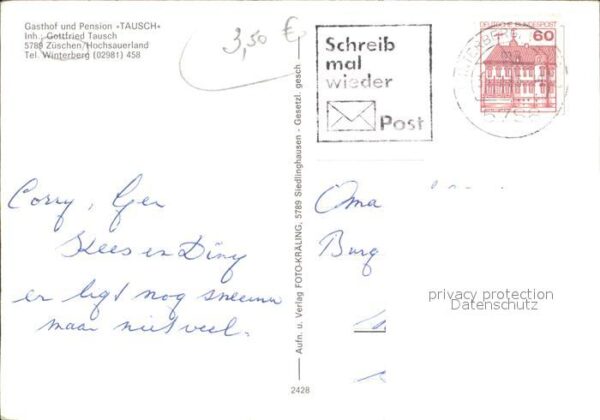 Gasthof und Pension »TAUSCH«
Inh.: Gottfried Tausch
5789 Züschen/Hochsauerland
Tel. Winterberg (02981) 458
3,50 €
Schreib
mal
wieder
Post
DEUTSCHE BUNDESPOST
60
Aufn. u. Verlag FOTO-KRÄLING, 5789 Siedlinghausen - Gesetzl. gesch
Corry, Ger
Kees en Diny
er ligt nog sneeuw
maar niet veel.
Oma
Burg
privacy protection
Datenschutz
2428